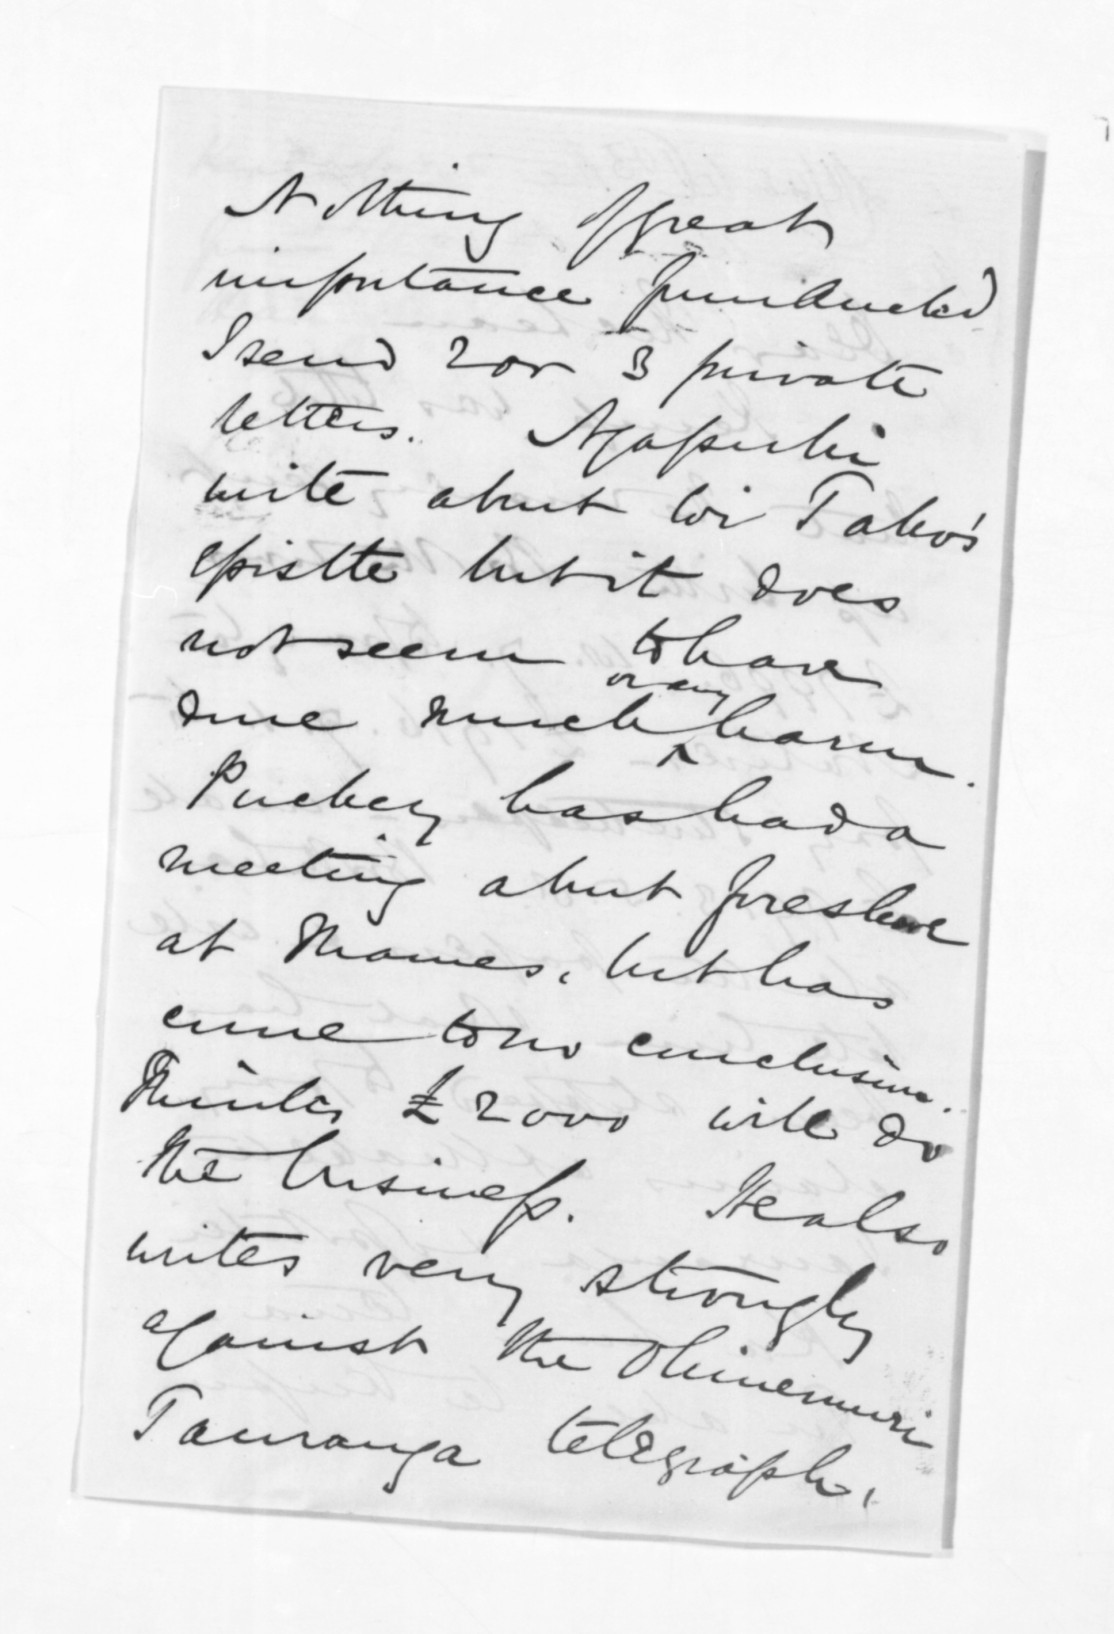 Nothing of great
importance from Auckd
I send 2 or 3 private
letters. Ngapuhi
write about Wi Tako's
epistle but it does
not seem to have
done much or any harm.
Puckey has had a
meeting about foreshore
at Thames, but has
come to no conclusion.
Thinks £2000 will do
the business. He also
writes very strongly
against the Ohinemuri
Tauranga telegraph.